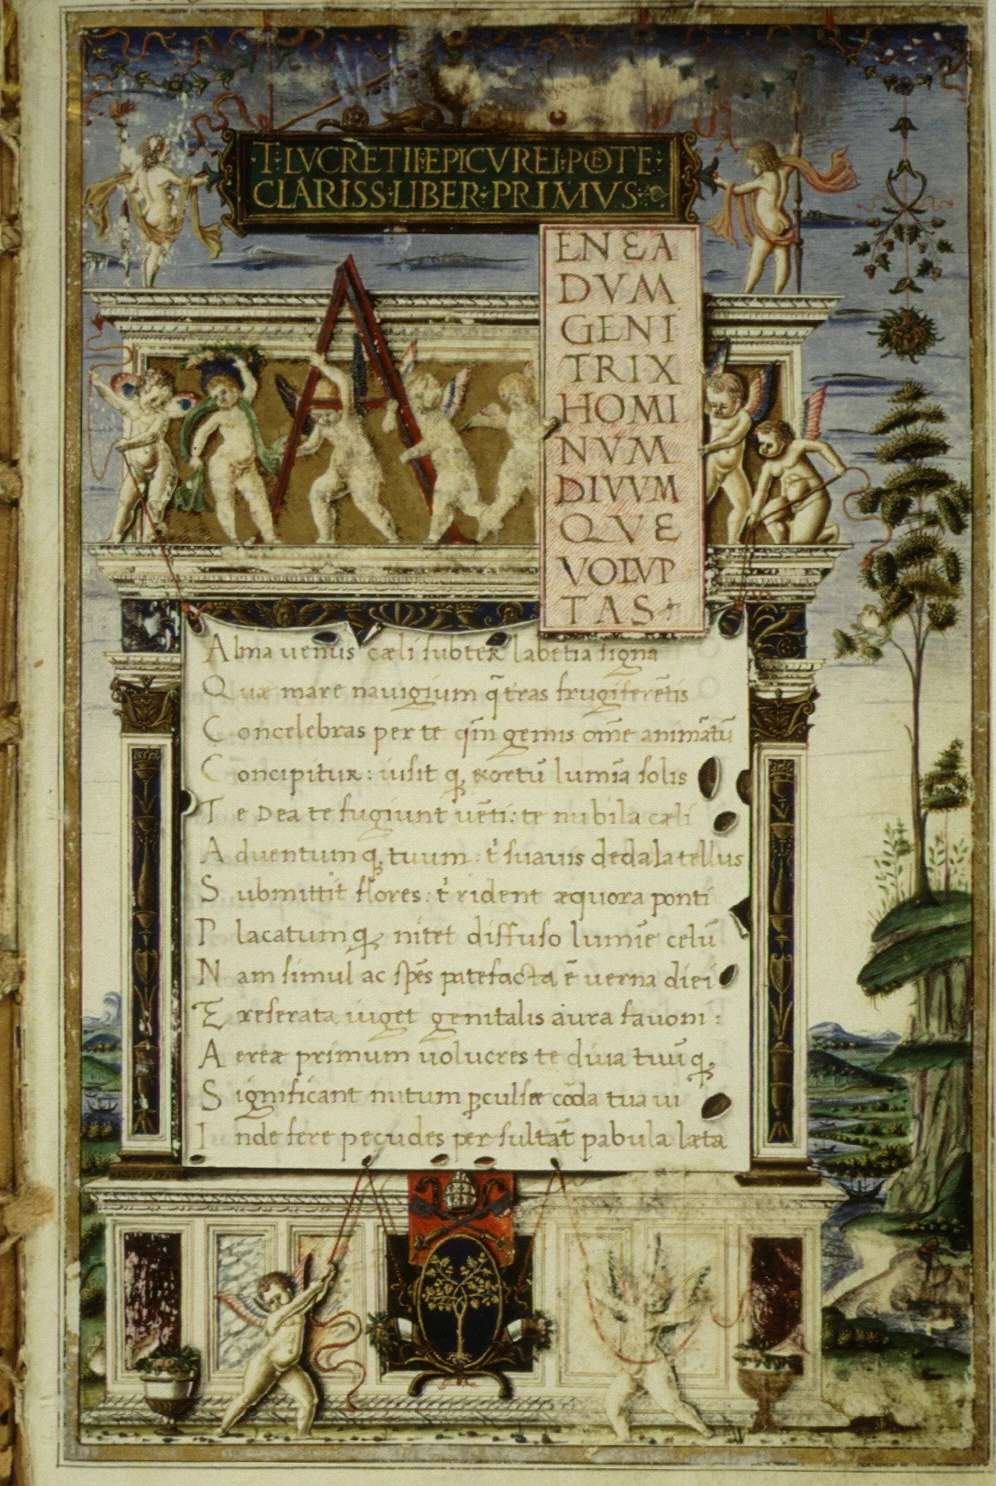 T·LVCRETII·EPICVREI·POETE·
CLARISS·LIBER·PRIMVS·
A
ENEA
DVM
GENI
TRIX
HOMI
NVM
DIVVM
QVE
VOLVP
TAS
Alma uenus cæli subter labētia signa
Quæ mare nauigium q̄ tras frugiferētis
Concelebras per te qm̄ genus om̄e animātū
Concipitur: uisit q; exortū lumīa solis
Te Dea te fugiunt uēti: te nubila cæli
Aduentumq; tuum: t' suauis dedala tellus
Submittit flores: t' rident æquora ponti
Placatumq; nitet diffuso lumīe celū
Nam simul ac spēs patefacta ē uerna diei
Et reserata uiget genitalis aura fauoni:
Aereæ primum uolucres te diua tuūq;
Significant initum ꝑculsæ cōda tua ui
Inde fere pecudes per sultāt pabula læta